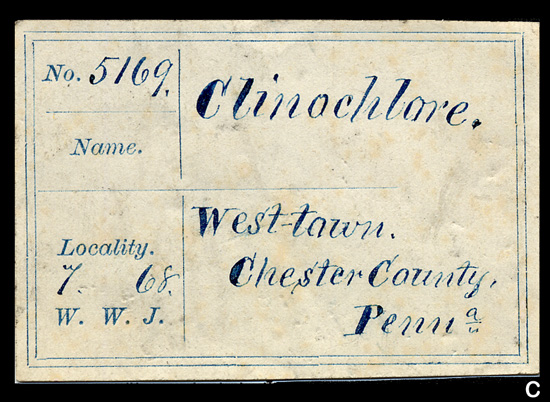 No. 5169.
Clinochlore.
Name.
West-town.
Chester County,
Penna
Locality.
7. 68.
W. W. J.
C